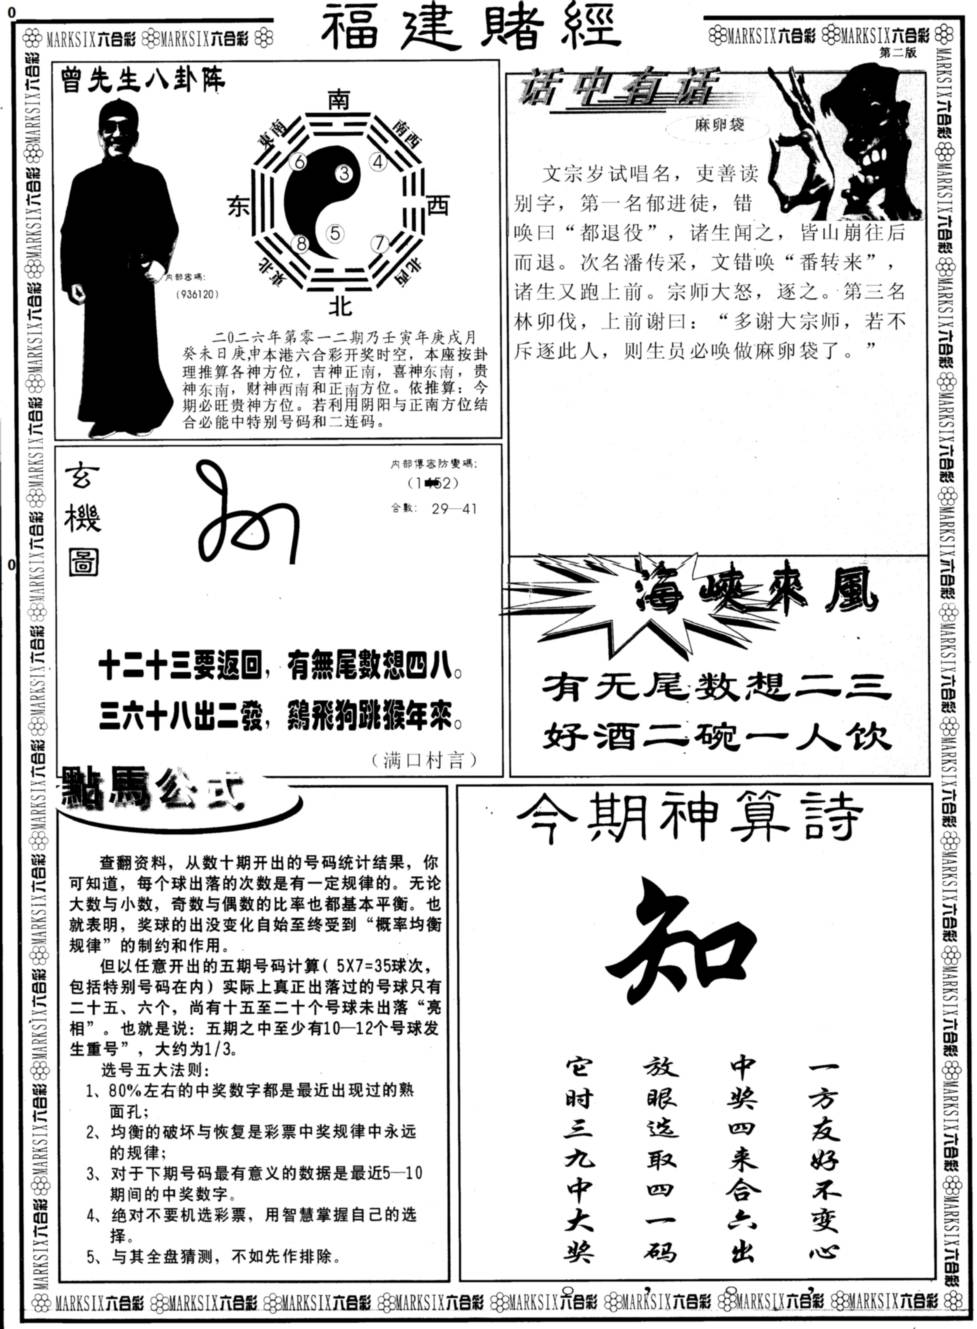 福建賭經
MARKSIX六合彩 MARKSIX六合彩
MARKSIX六合彩 MARKSIX六合彩
第二版
曾先生八卦阵
南
東南
南西
⑥
③
④
东
西
⑧
⑤
⑦
東北
北西
北
内部密碼：
（936120）
二0二六年第零一二期乃壬寅年庚戌月
癸未日庚申本港六合彩开奖时空，本座按卦
理推算各神方位，吉神正南，喜神东南，贵
神东南，财神西南和正南方位。依推算：今
期必旺贵神方位。若利用阴阳与正南方位结
合必能中特别号码和二连码。
话中有话
麻卵袋
文宗岁试唱名，吏善读
别字，第一名郁进徒，错
唤曰“都退役”，诸生闻之，皆山崩往后
而退。次名潘传采，文错唤“番转来”，
诸生又跑上前。宗师大怒，逐之。第三名
林卯伐，上前谢曰：“多谢大宗师，若不
斥逐此人，则生员必唤做麻卵袋了。”
玄機圖
内部傳密防變碼：
合數： 29—41
十二十三要返回，有無尾數想四八。
三六十八出二發，鷄飛狗跳猴年來。
（满口村言）
海峽來風
有无尾数想二三
好酒二碗一人饮
點馬公式
查翻资料，从数十期开出的号码统计结果，你
可知道，每个球出落的次数是有一定规律的。无论
大数与小数，奇数与偶数的比率也都基本平衡。也
就表明，奖球的出没变化自始至终受到“概率均衡
规律”的制约和作用。
但以任意开出的五期号码计算（5X7=35球次，
包括特别号码在内）实际上真正出落过的号球只有
二十五、六个，尚有十五至二十个号球未出落“亮
相”。也就是说：五期之中至少有10—12个号球发
生重号”，大约为1/3。
选号五大法则：
1、80%左右的中奖数字都是最近出现过的熟
面孔；
2、均衡的破坏与恢复是彩票中奖规律中永远
的规律；
3、对于下期号码最有意义的数据是最近5—10
期间的中奖数字。
4、绝对不要机选彩票，用智慧掌握自己的选
择。
5、与其全盘猜测，不如先作排除。
今期神算詩
知
一方友好不变心，
中奖四来合六出。
放眼选取四一码，
它时三九中大奖。
MARKSIX六合彩 MARKSIX六合彩 MARKSIX六合彩 MARKSIX六合彩 MARKSIX六合彩 MARKSIX六合彩 MARKSIX六合彩 MARKSIX六合彩